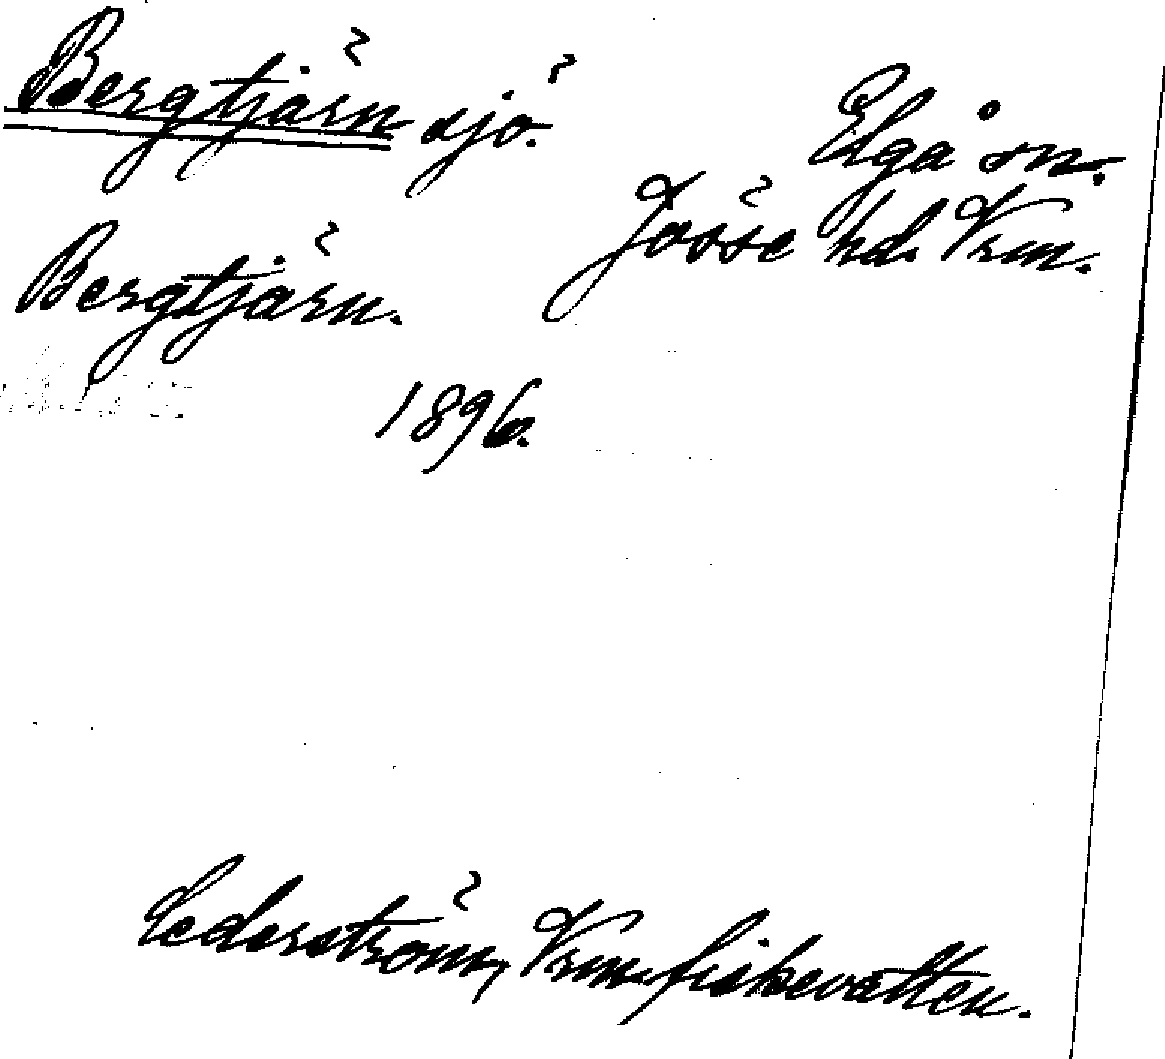 Bergtjärn sjö.
Elgå sn.
Jösse hd. Vrm.
Bergtjärn.
1896.
Cederström, Vrm. fiskevatten.